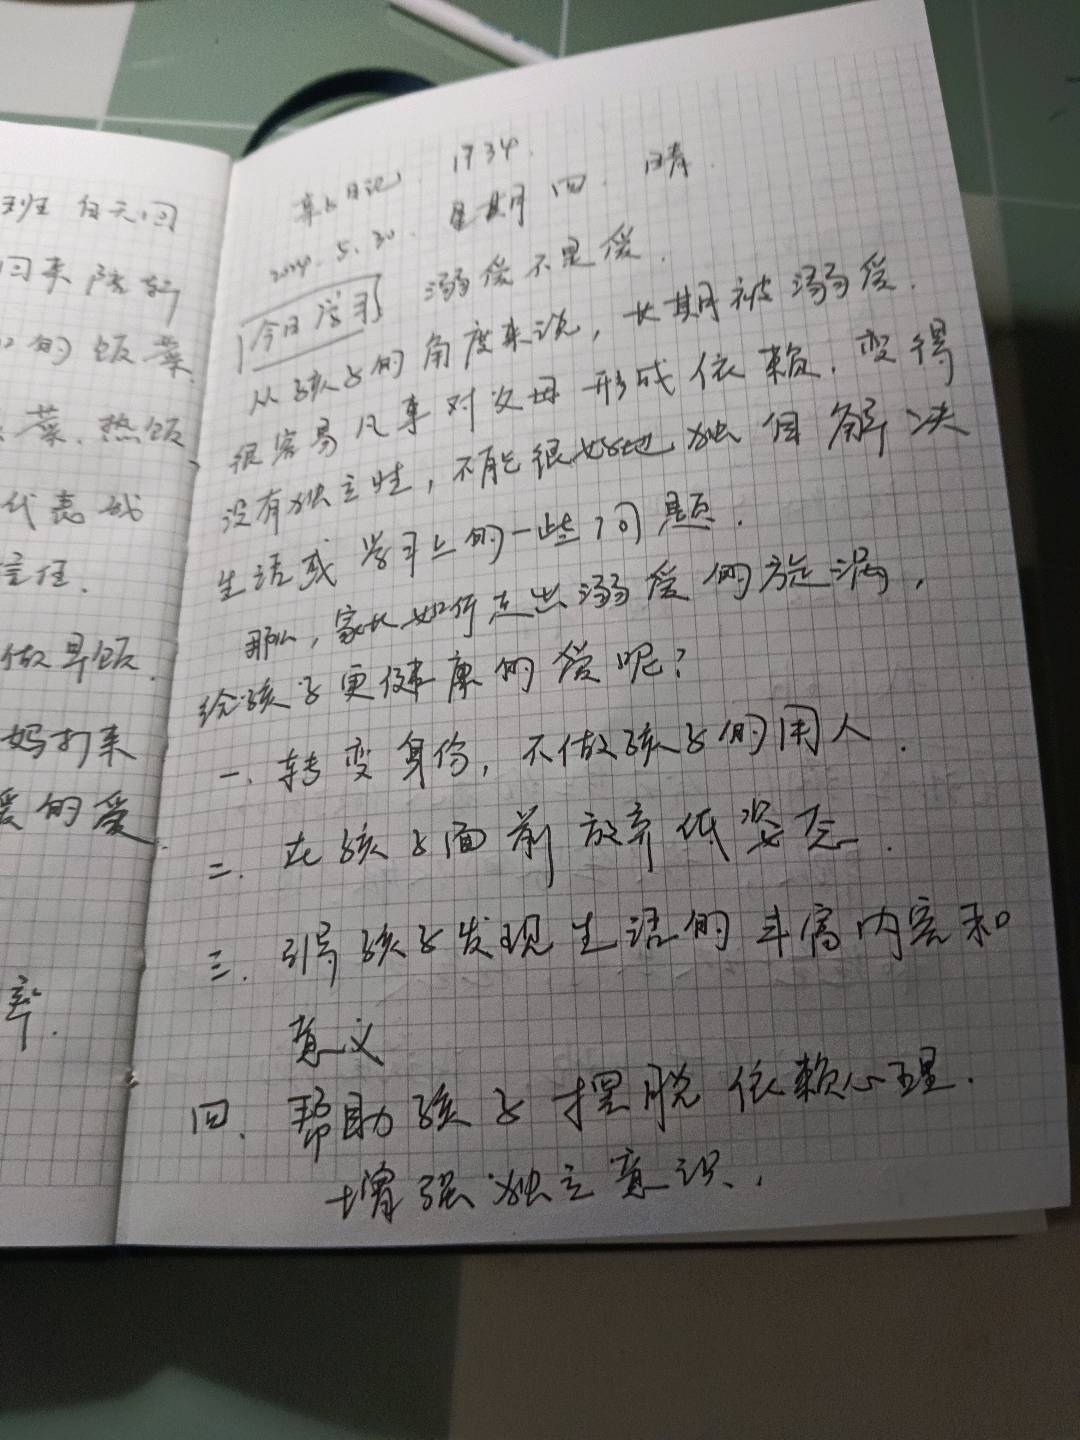 班 每天回
回来陪轩
的饭菜.
菜.热饭
代表我
信任.
做早饭.
妈打来
爱的爱.
率.
亲子日记 1734.
2024.5.30. 星期四. 晴.
今日学习 溺爱不是爱.
从孩子的角度来说,长期被溺爱.
很容易凡事对父母形成依赖.变得
没有独立性,不能很好地独自解决
生活或学习上的一些问题.
那么,家长如何走出溺爱的旋涡,
给孩子更健康的爱呢?
一.转变身份,不做孩子的用人.
二.在孩子面前放弃低姿态.
三.引导孩子发现生活的丰富内容和
意义
四.帮助孩子摆脱依赖心理.
增强独立意识.